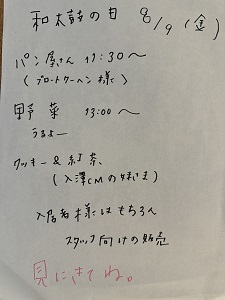 和太鼓の日 8/9 (金)
パン屋さん 11:30〜
(ブロートクーヘン様で)
野菜 13:00〜
うるよー
クッキー & 紅茶
(入澤CMの妹さま)
入居者様はもちろん
スタッフ向けの販売
見にきてね。